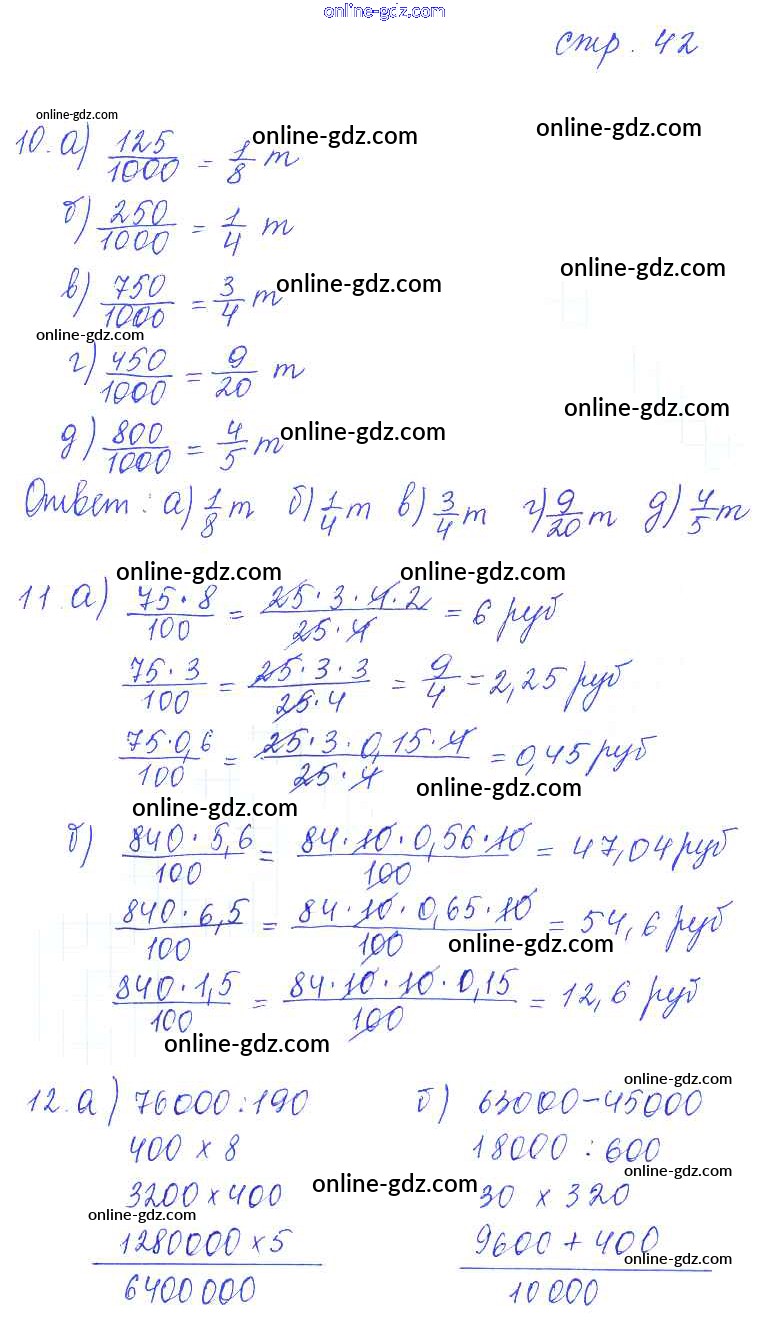 online-gdz.com
стр. 42
online-gdz.com
10. а) 125/1000 = 1/8 т online-gdz.com online-gdz.com
б) 250/1000 = 1/4 т
в) 750/1000 = 3/4 т online-gdz.com online-gdz.com
online-gdz.com
г) 450/1000 = 9/20 т
д) 800/1000 = 4/5 т online-gdz.com online-gdz.com
Ответ: а) 1/8 т б) 1/4 т в) 3/4 т г) 9/20 т д) 4/5 т
online-gdz.com online-gdz.com
11. а) 75·8/100 = 25·3·4·2/25·4 = 6 руб
75·3/100 = 25·3·3/25·4 = 9/4 = 2,25 руб
75·0,6/100 = 25·3·0,15·4/25·4 = 0,45 руб
online-gdz.com
online-gdz.com
б) 840·5,6/100 = 84·10·0,56·10/100 = 47,04 руб
840·6,5/100 = 84·10·0,65·10/100 = 54,6 руб
online-gdz.com
840·1,5/100 = 84·10·10·0,15/100 = 12,6 руб
online-gdz.com
online-gdz.com
12. а) 76000:190 б) 63000-45000
400 x 8 18000 : 600
online-gdz.com
3200 x 400 online-gdz.com 30 x 320
online-gdz.com
1280000 x 5 9600 + 400
online-gdz.com
6400 000 10 000